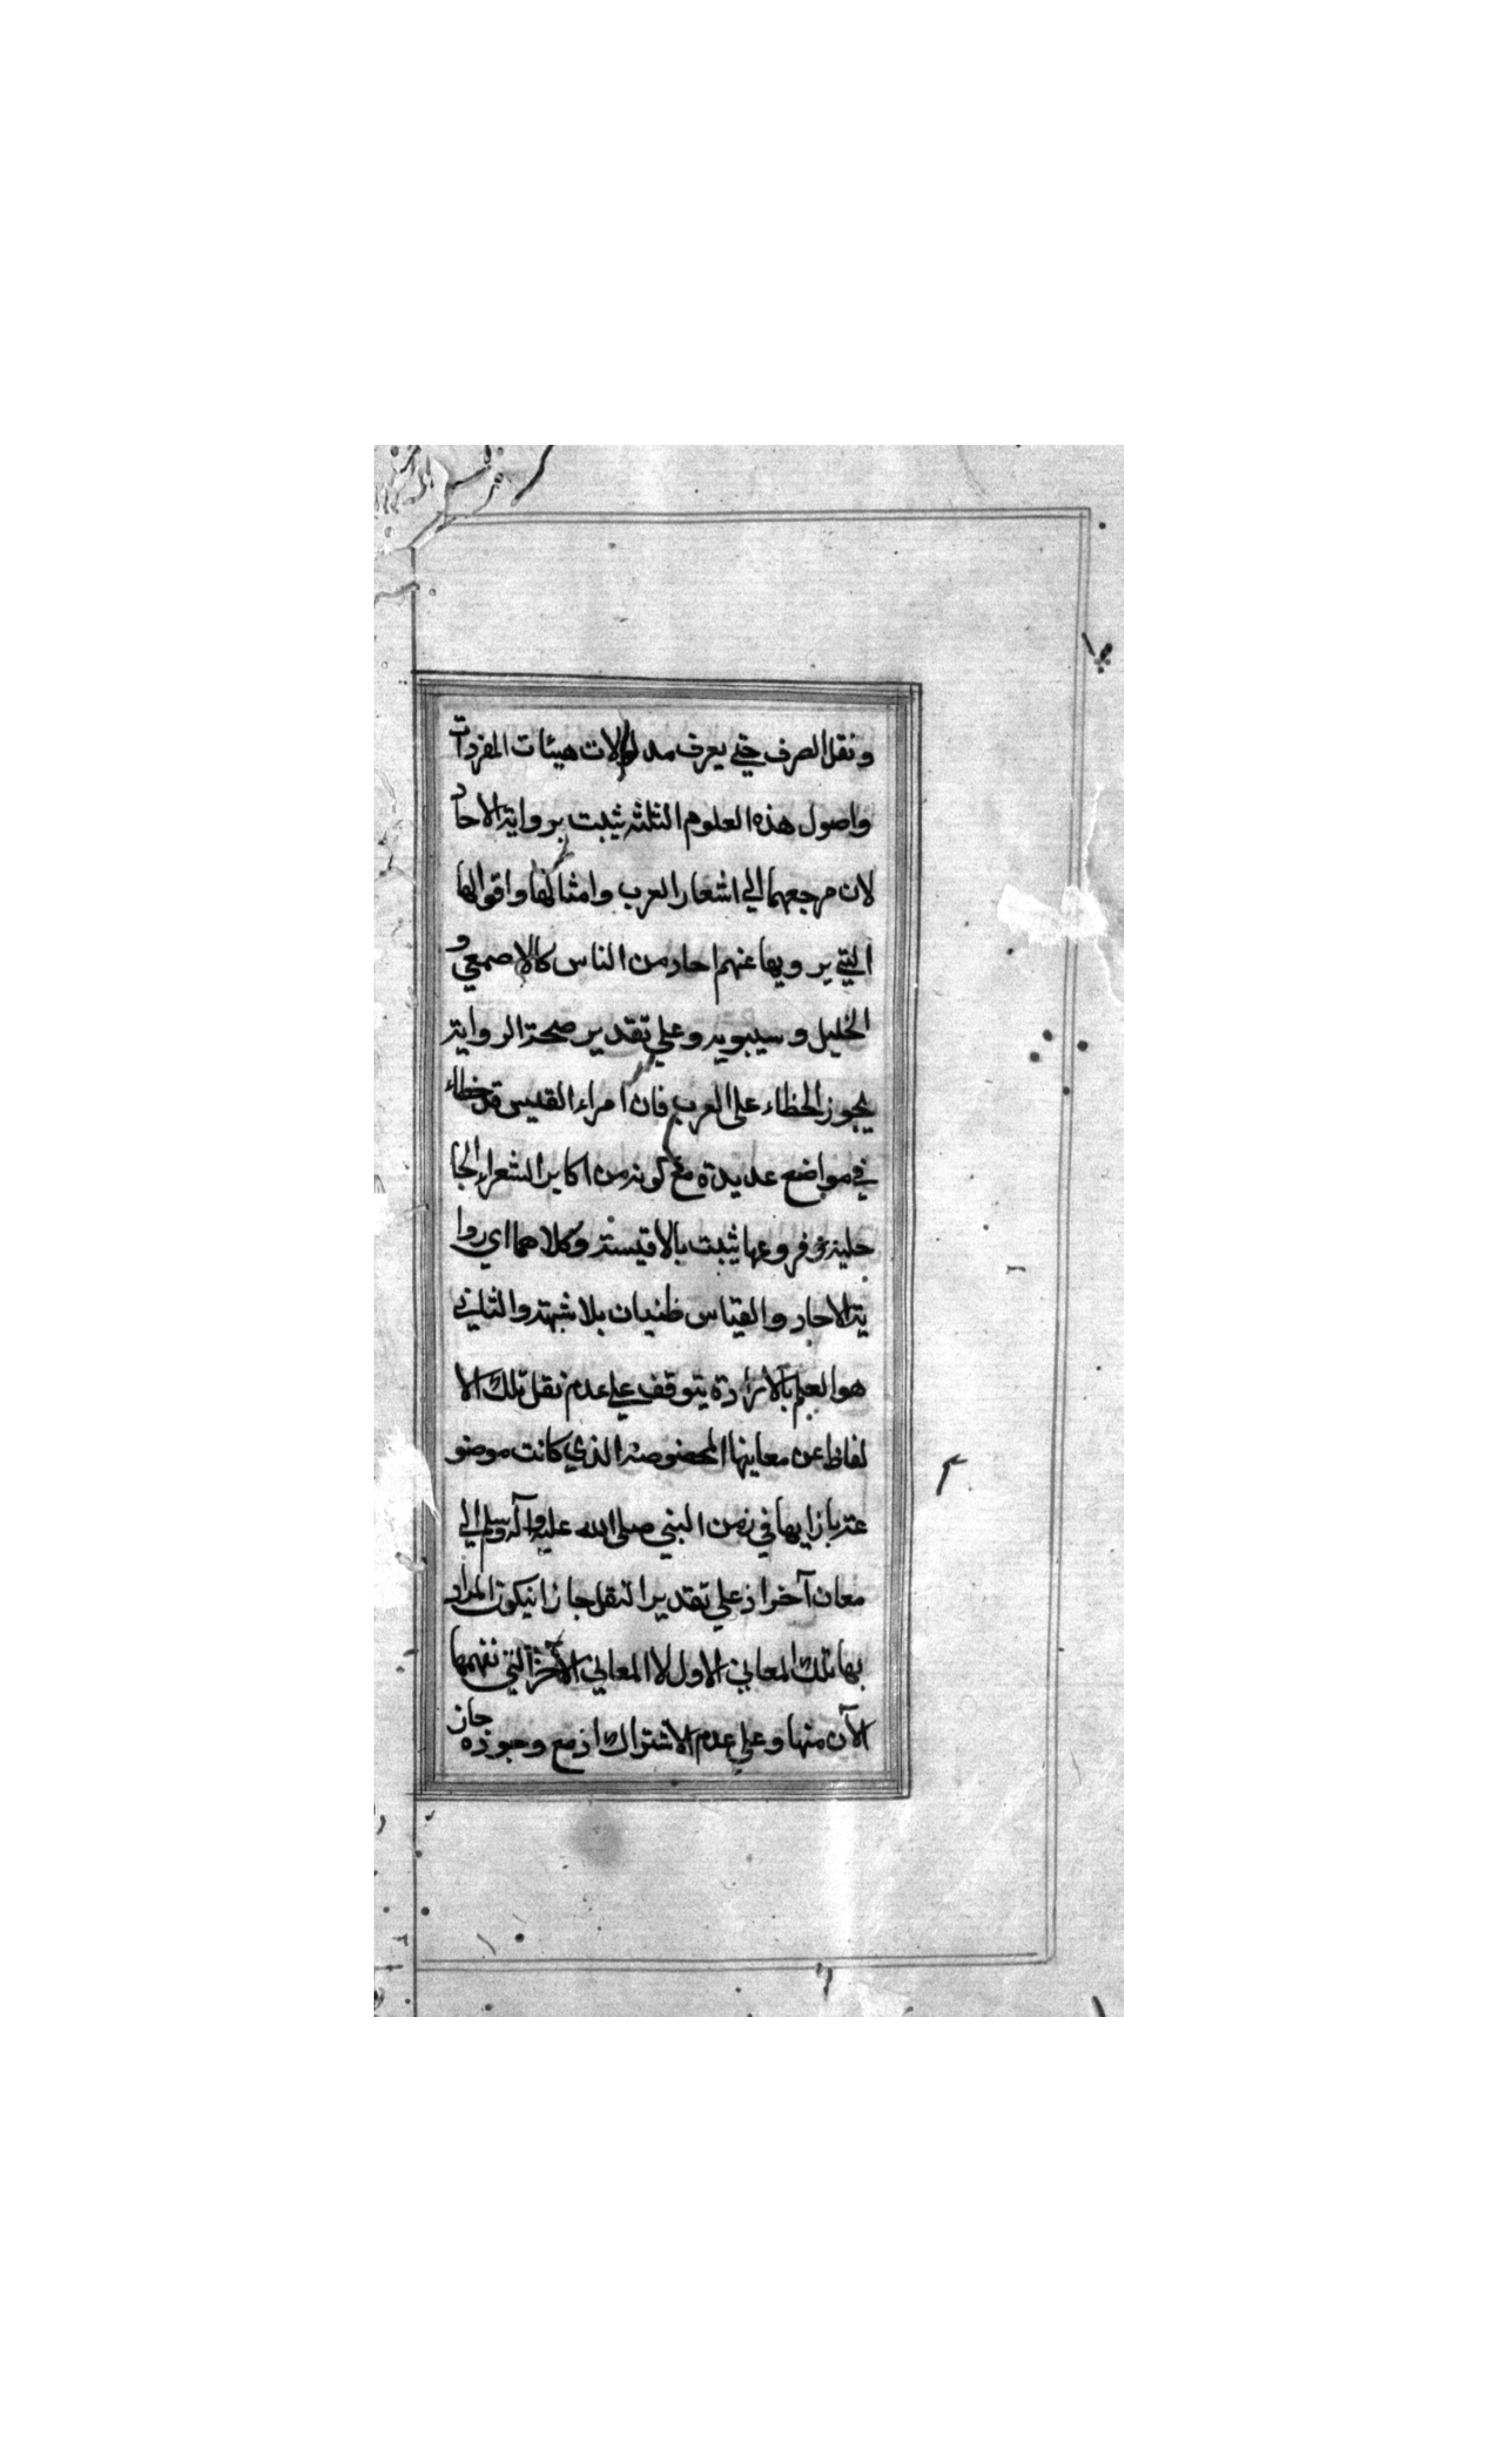 ونقل الصرف حتي يعرف مدلولات هيئات المفردات
واصول هذه العلوم الثلثه يثبت برواية الاحاد
لان مرجعهما الي اشعار العرب وامثالها واقوالها
التي يرويها عنهم احاد من الناس كالاصمعي و
الخليل و سيبويه وعلي تقدير صحة الرواية
يجوز الخطاء علي العرب فان امراء القيس قد خطاء
في مواضع عديدة مع كونه من اكابر الشعراء الجا
هلية و فروعها يثبت بالاقيسة وكلاهما اي روا
ية الاحاد والقياس ظنيان بلا شبهة والثاني
هو العلم بالارادة يتوقف علي عدم نقل تلك الا
لفاظ عن معاينها المخصوصة الذي كانت موضو
عة بازايها في زمن النبي صلي الله عليه وآله وسلم الي
معان آخر اذ علي تقدير النقل جاز ان يكون المراد
بها تلك المعاني الاول لا المعاني الآخر التي نفهمها
الآن منها وعلي عدم الاشتراك اذ مع وجوده جاز